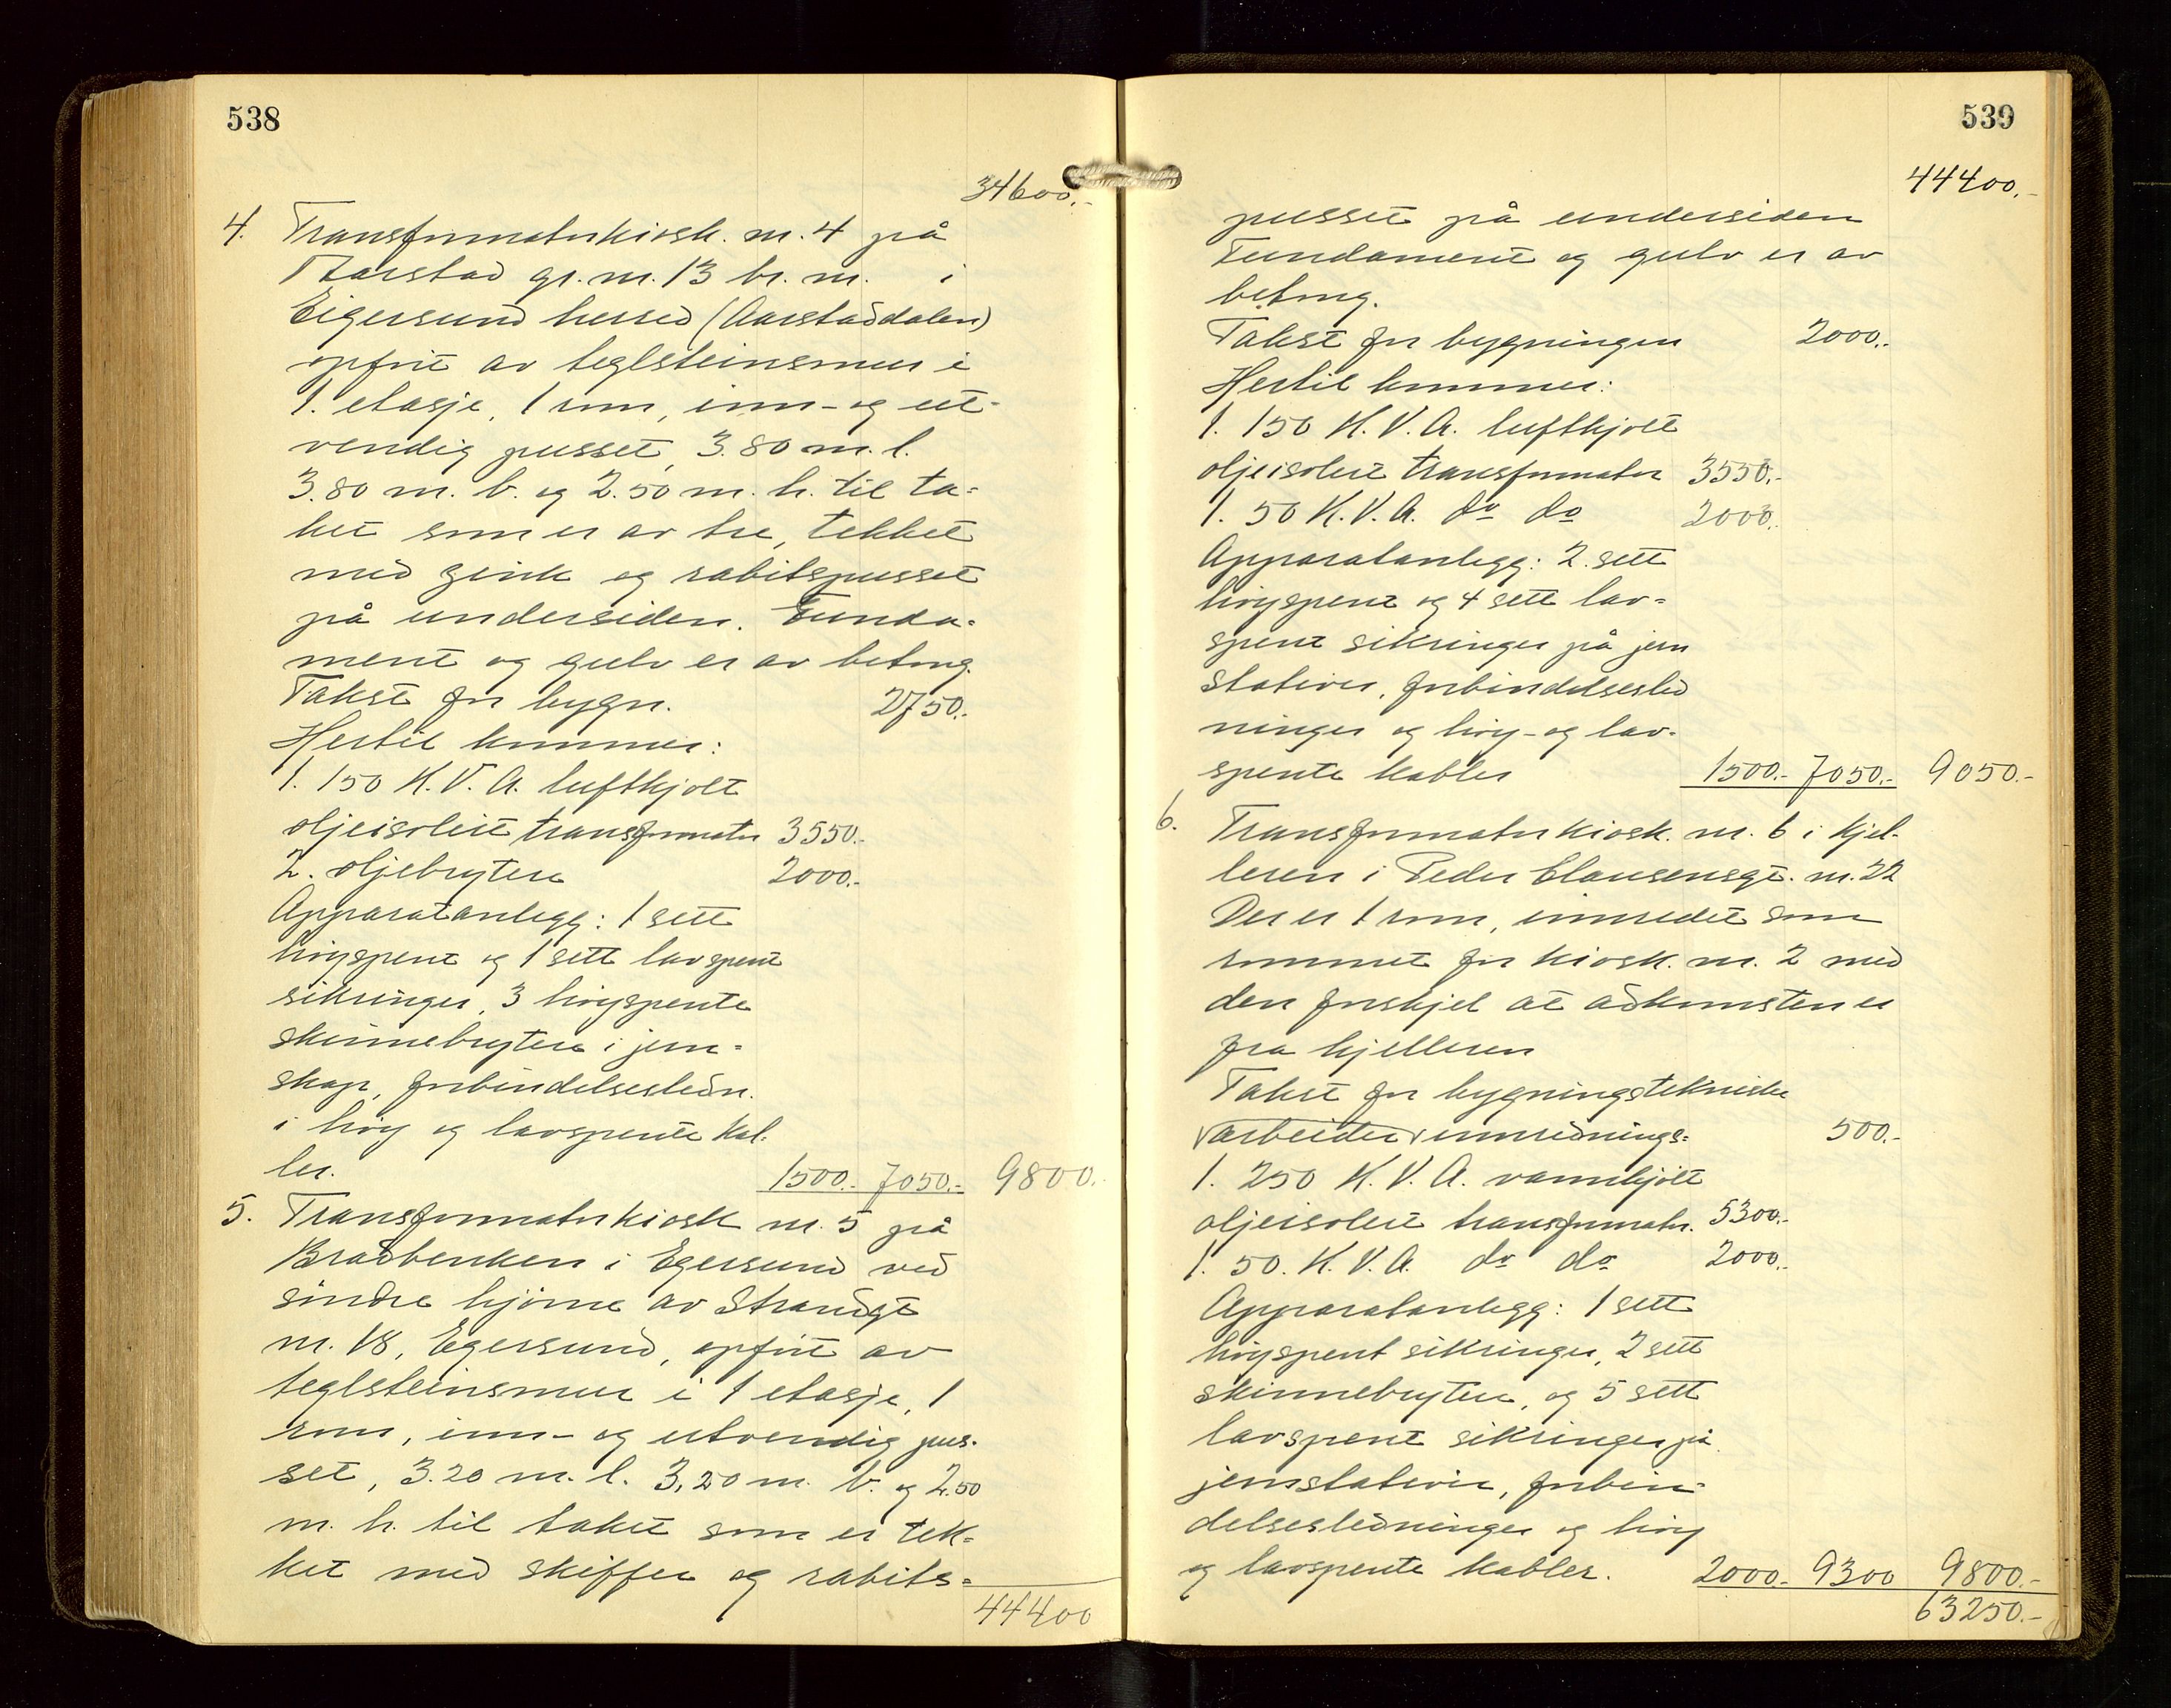 538
34600.-
4. Transformatorkiosk. nr. 4 på
Aarstad gr. nr. 13 br. nr. i
Eigersund herred (Aarstaddalen)
opført av teglsteinsmur i
1. etasje, 1 rom, inn- og ut-
vendig pusset, 3.80 m. l.
3.80 m. b. og 2.50 m. h. til ta=
ket som er av tre, tekket
med zink og rabitspusset
på undersiden. Funda=
ment og gulv er av betong.
Takst for bygn. 2750.-
Hertil kommer:
1. 150 K.V.A. luftkjølt
oljeisolert transformator 3550.-
2. oljebrytere 2000.-
Apparatanlegg: 1 sett
høyspent og 1 sett lavspent
sikringer, 3 høyspente
skinnebrytere i jern=
skap, forbindelsesledn.
i høy og lavspente kab-
ler. 1500.- 7050.- 9800.-
5. Transformatorkiosk nr. 5 på
Bradbenken i Egersund ved
søndre hjørne av Strandgt
nr. 18, Egersund, opført av
teglsteinsmur i 1 etasje, 1
rom, inn- og utvendig pus-
set, 3.20 m. l. 3,20 m. b. og 2.50
m. h. til taket som er tek=
ket med skiffer og rabits=
44400
539
44400.-
pusset på undersiden
Fundament og gulv er av
betong.
Takst for bygningen 2000.-
Hertil kommer:
1. 150 K.V.A. luftkjølt
oljeisolert transformator 3550.-
1. 50 K.V.A. do do 2000.-
Apparatanlegg: 2. sett
høyspent og 4 sett lav=
spent sikringer på jern
stativer, forbindelsesled
ninger og høy- og lav-
spente kabler 1500.- 7050.- 9050.-
6. Transformatorkiosk. nr. 6 i kjel-
leren i Peder Clausensgt. nr. 22
Der er 1 rom, innredet som
rommet for kiosk. nr. 2 med
den forskjel at adkomsten er
fra kjelleren
Takst for bygningstekniske
arbeider innrednings= 500.-
1. 250 K.V.A. vannkjølt
oljeisolert transformator. 5300.-
1. 50. K.V.A. do do 2000.-
Apparatanlegg: 1 sett
høyspent sikringer, 2 sett
skinnebrytere, og 5 sett
lavspent sikringer på
jernstativer, forbin=
delsesledninger og høy
og lavspente kabler. 2000.- 9300 9800.-
63250.-